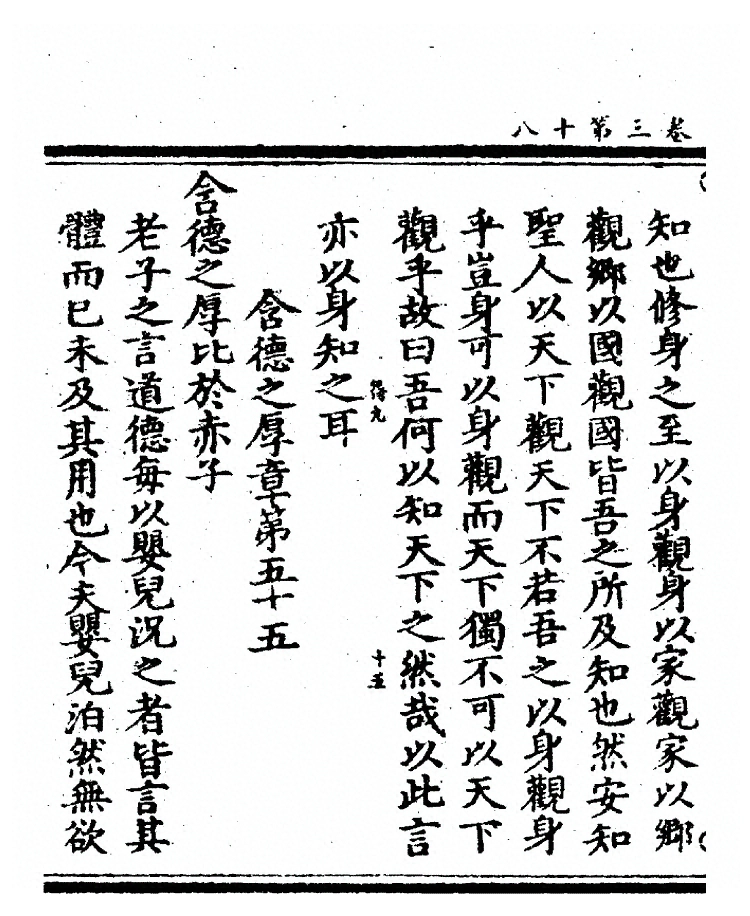 卷三第十八
知也修身之至以身觀身以家觀家以鄉
觀鄉以國觀國皆吾之所及知也然安知
聖人以天下觀天下不若吾之以身觀身
乎豈身可以身觀而天下獨不可以天下
觀乎故曰吾何以知天下之然哉以此言
得九
十五
亦以身知之耳
含德之厚章第五十五
含德之厚比於赤子
老子之言道德每以嬰兒況之者皆言其
體而已未及其用也今夫嬰兒泊然無欲